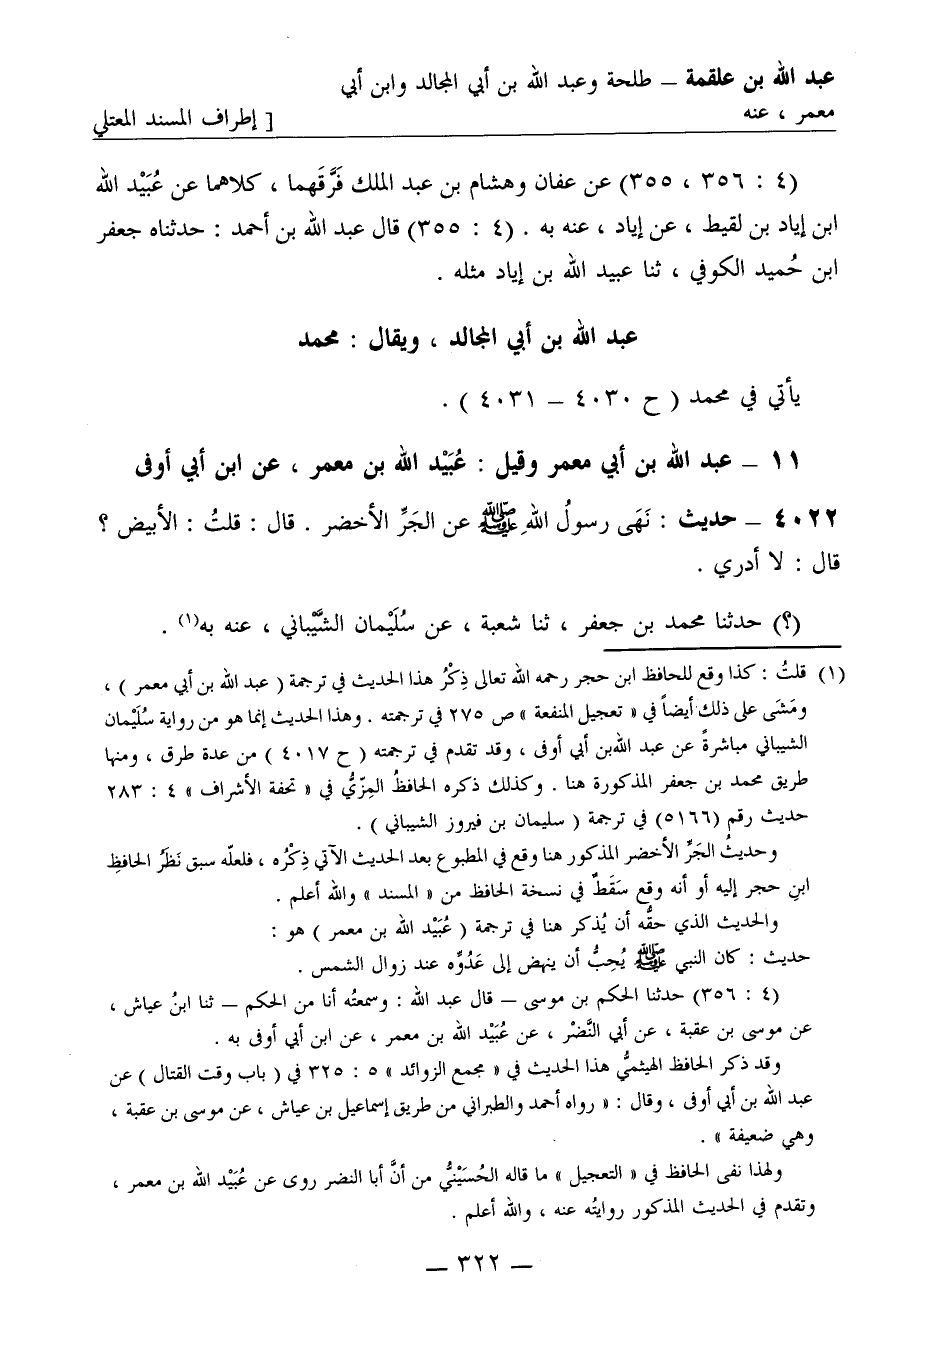 عبد الله بن علقمة – طلحة وعبد الله بن أبي المجالد وابن أبي
معمر ، عنه
[ إطراف المسند المعتلي
(٤ : ٣٥٦ ، ٣٥٥) عن عفان وهشام بن عبد الملك فَرَّقَهما ، كلاهما عن عُبَيْد الله
ابن إياد بن لقيط ، عن إياد ، عنه به . (٤ : ٣٥٥) قال عبد الله بن أحمد : حدثناه جعفر
ابن حُميد الكوفي ، ثنا عبيد الله بن إياد مثله .
عبد الله بن أبي المجالد ، ويقال : محمد
يأتي في محمد ( ح ٤٠٣٠ – ٤٠٣١ ) .
١١ – عبد الله بن أبي معمر وقيل : عُبَيْد الله بن معمر ، عن ابن أبي أوفى
٤٠٢٢ – حديث : نَهَى رسولُ اللهِ ﷺ عن الجَرِّ الأخضر . قال : قلتُ : الأبيض ؟
قال : لا أدري .
(؟) حدثنا محمد بن جعفر ، ثنا شعبة ، عن سُلَيْمان الشَّيْباني ، عنه به(١) .
(١) قلتُ : كذا وقع للحافظ ابن حجر رحمه الله تعالى ذِكْرُ هذا الحديث في ترجمة ( عبد الله بن أبي معمر ) ،
ومَشَى على ذلك أيضاً في « تعجيل المنفعة » ص ٢٧٥ في ترجمته . وهذا الحديث إنما هو من رواية سُلَيْمان
الشيباني مباشرةً عن عبد الله بن أبي أوفى ، وقد تقدم في ترجمته ( ح ٤٠١٧ ) من عدة طرق ، ومنها
طريق محمد بن جعفر المذكورة هنا . وكذلك ذكره الحافظُ المِزِّيُّ في « تحفة الأشراف » ٤ : ٢٨٣
حديث رقم (٥١٦٦) في ترجمة ( سليمان بن فيروز الشيباني ) .
وحديثُ الجَرِّ الأخضر المذكور هنا وقع في المطبوع بعد الحديث الآتي ذِكْرُه ، فلعلّه سبق نَظَرُ الحافظِ
ابنِ حجر إليه أو أنه وقع سَقَطٌ في نسخة الحافظ من « المسند » والله أعلم .
والحديث الذي حقُّه أن يُذكر هنا في ترجمة ( عُبَيْد الله بن معمر ) هو :
حديث : كان النبي ﷺ يُحِبُّ أن ينهض إلى عَدُوِّه عند زوال الشمس .
(٤ : ٣٥٦) حدثنا الحكم بن موسى – قال عبد الله : وسمعتُه أنا من الحكم – ثنا ابنُ عياش ،
عن موسى بن عقبة ، عن أبي النَّضْر ، عن عُبَيْد الله بن معمر ، عن ابن أبي أوفى به .
وقد ذكر الحافظ الهيثميُّ هذا الحديث في « مجمع الزوائد » ٥ : ٣٢٥ في ( باب وقت القتال ) عن
عبد الله بن أبي أوفى ، وقال : « رواه أحمد والطبراني من طريق إسماعيل بن عياش ، عن موسى بن عقبة ،
وهي ضعيفة » .
ولهذا نفى الحافظ في « التعجيل » ما قاله الحُسَيْنيُّ من أنَّ أبا النضر روى عن عُبَيْد الله بن معمر ،
وتقدم في الحديث المذكور روايتُه عنه ، والله أعلم .
– ٣٢٢ –